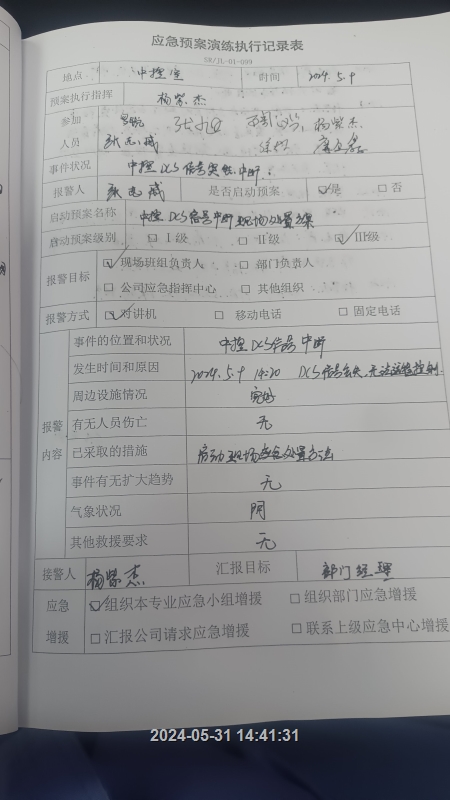 应急预案演练执行记录表
SR/JL-01-009
地点 中控室 时间 2024.5.9
预案执行指挥 杨紫杰
参加 杨紫杰
人员 张志斌
事件状况 中控DCS信号突然中断.
报警人 张志斌 是否启动预案 ☑是 □否
启动预案名称 中控DCS信号中断现场处置方案
启动预案级别 □Ⅰ级 □Ⅱ级 ☑Ⅲ级
报警目标 ☑现场班组负责人 □部门负责人
□公司应急指挥中心 □其他组织
报警方式 ☑对讲机 □移动电话 □固定电话
报警内容
事件的位置和状况 中控DCS信号中断
发生时间和原因 2024.5.9 14:20 DCS信号丢失,无法远程控制
周边设施情况 完好
有无人员伤亡 无
已采取的措施 启动现场应急处置方法
事件有无扩大趋势 无
气象状况 阴
其他救援要求 无
接警人 杨紫杰 汇报目标 部门经理
应急 ☑组织本专业应急小组增援 □组织部门应急增援
增援 □汇报公司请求应急增援 □联系上级应急中心增援
2024-05-31 14:41:31